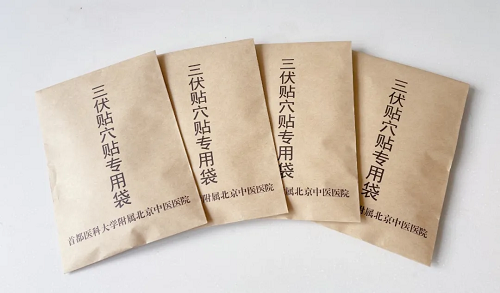 三伏贴穴贴专用袋
首都医科大学附属北京中医医院
三伏贴穴贴专用袋
附属北京中医医院
三伏贴穴贴专用袋
附属北京中医医院
三伏贴穴贴专用袋
附属北京中医医院